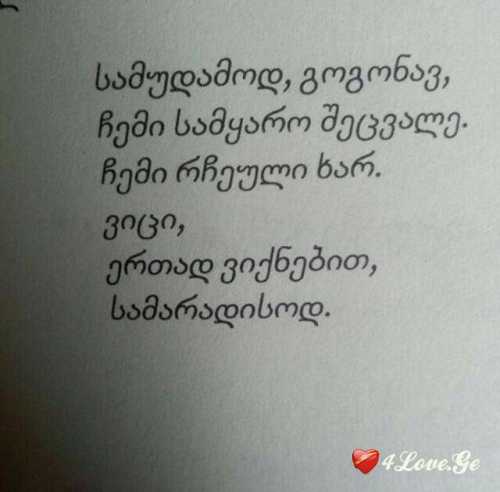 სამუდამოდ, გოგონავ,
ჩემი სამყარო შეცვალე.
ჩემი რჩეული ხარ.
ვიცი,
ერთად ვიქნებით,
სამარადისოდ.
4Love.Ge